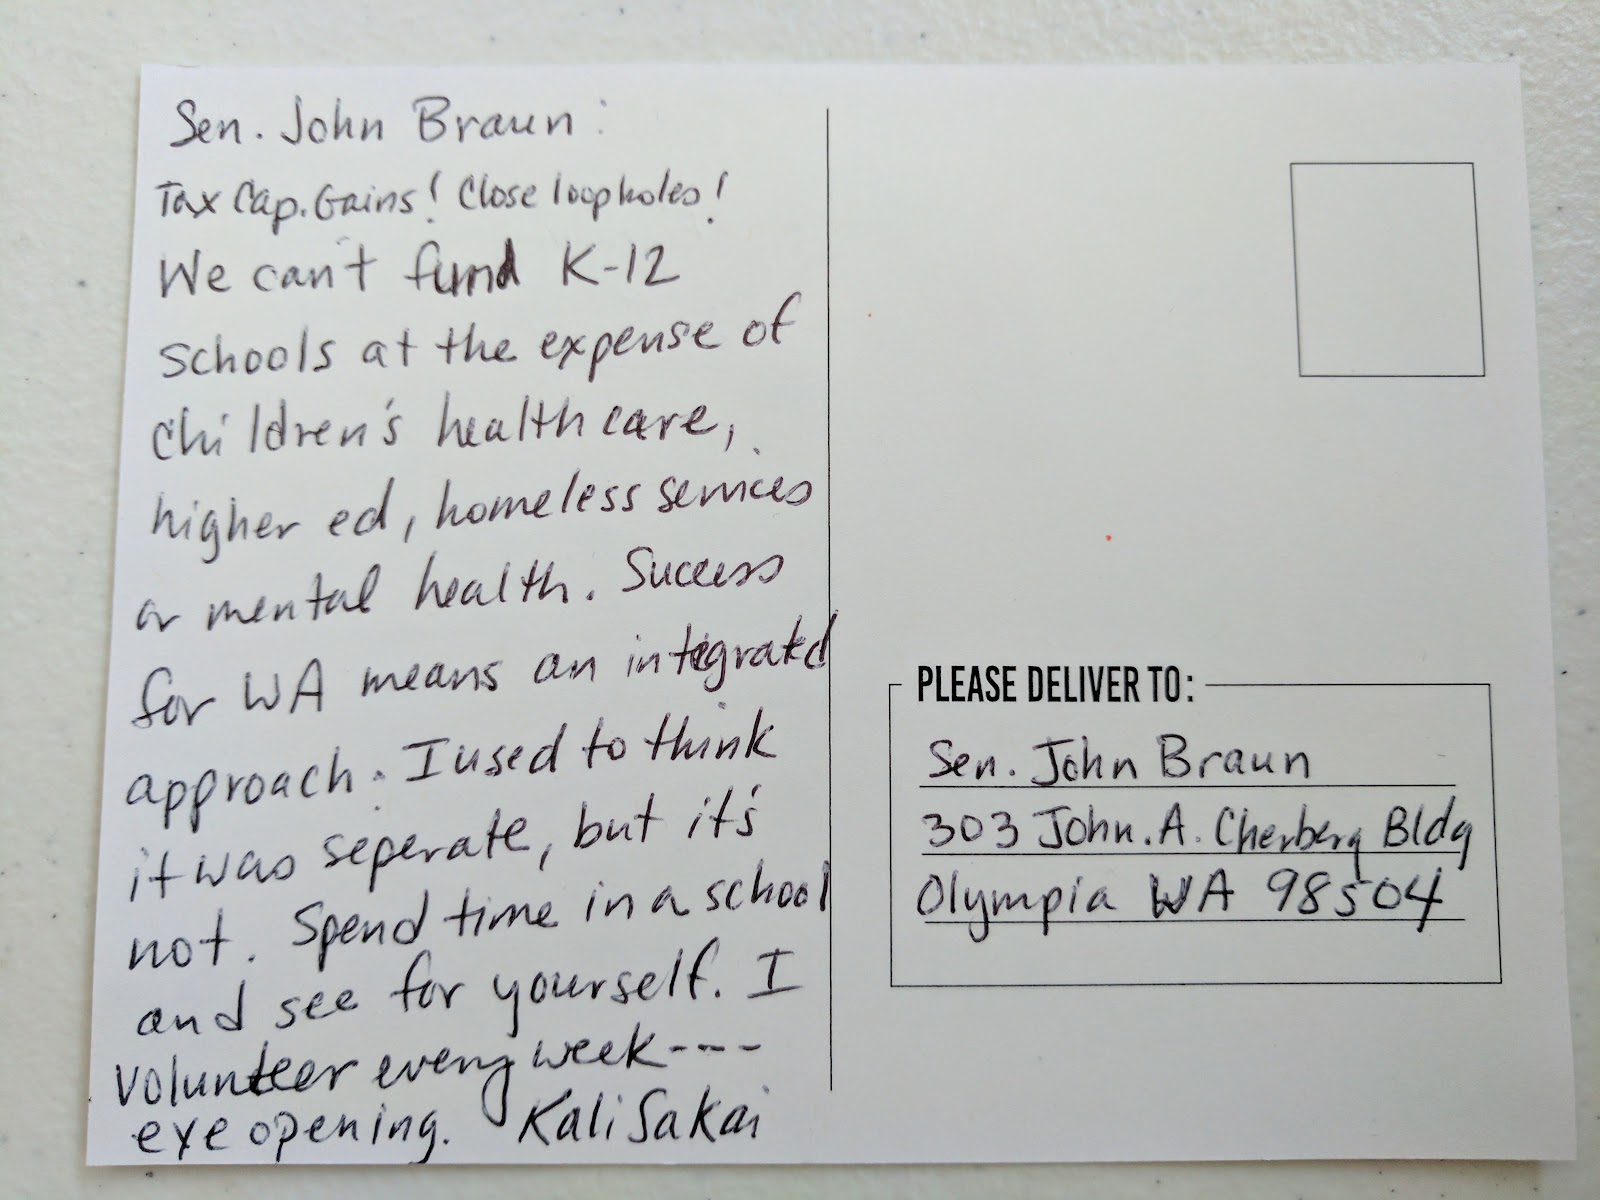 Sen. John Braun:
Tax Cap. Gains! Close loopholes!
We can't fund K-12
schools at the expense of
children's healthcare,
higher ed, homeless services
or mental health. Success
for WA means an integrated
approach. I used to think
it was seperate, but it's
not. Spend time in a school
and see for yourself. I
volunteer every week----
eye opening. Kali Sakai
PLEASE DELIVER TO:
Sen. John Braun
303 John. A. Cherberg Bldg
Olympia WA 98504